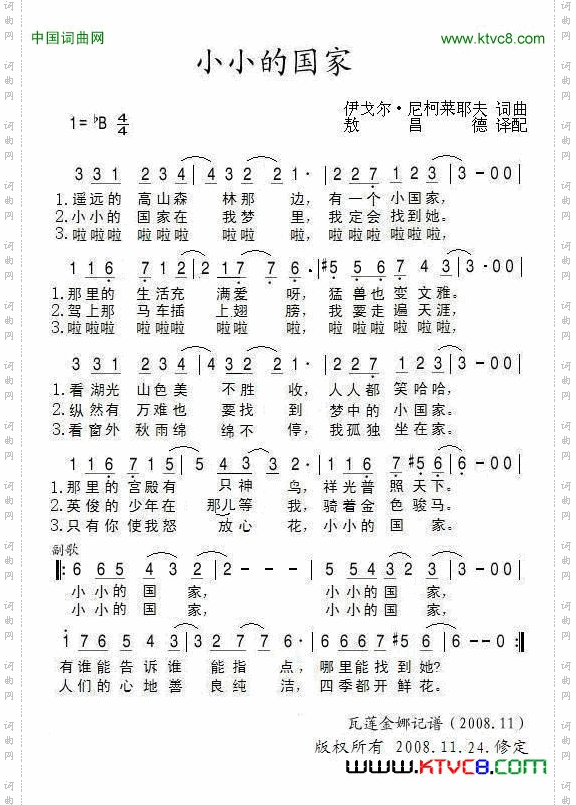 中国词曲网
www.ktvc8.com
小小的国家
1=♭B 4/4
伊戈尔·尼柯莱耶夫 词曲
敖 昌 德 译配
3 3 1 2 3 4 | 4 3 2 3 2 1· | 2 2 7 1 2 3 | 3 - 0 0 |
1.遥远的 高山森 林那 边，有一个 小国家，
2.小小的 国家在 我梦 里，我定会 找到她。
3.啦啦啦 啦啦啦 啦啦 啦，啦啦啦 啦啦啦，
1 1 6 7 1 2 | 2 1 7 7 6· | #5 5 6 7 4 3 | 3 - 0 0 |
1.那里的 生活充 满爱 呀，猛兽也 变文雅。
2.驾上那 马车插 上翅 膀，我要走 遍天涯，
3.啦啦啦 啦啦啦 啦啦 啦，啦啦啦 啦啦啦，
3 3 1 2 3 4 | 4 3 2 3 2 1· | 2 2 7 1 2 3 | 3 - 0 0 |
1.看湖光 山色美 不胜 收，人人都 笑哈哈，
2.纵然有 万难也 要找 到 梦中的 小国家。
3.看窗外 秋雨绵 绵不 停，我孤独 坐在家。
1 1 6 7 1 5 | 5 4 3 3 2· | 1 1 6 7 #5 6 | 6 - 0 0 |
1.那里的 宫殿有 只神 鸟，祥光普 照天下。
2.英俊的 少年在 那儿等 我，骑着金 色骏马。
3.只有你 使我怒 放心 花，小小的 国 家。
副歌
‖: 6 6 5 4 3 2 | 2 - - - | 5 5 4 3 2 3 | 3 - 0 0 |
小小的 国 家， 小小的 国 家，
小小的 国 家， 小小的 国 家，
1 7 6 5 4 3 | 3 2 1 7 6· | 6 6 6 7 #5 6 | 6 - - 0 :‖
有谁能告诉谁 能指 点，哪里能找到她?
人们的心地善 良纯 洁，四季都开鲜花。
瓦莲金娜记谱（2008.11）
版权所有 2008.11.24.修定
www.KTVC8.com